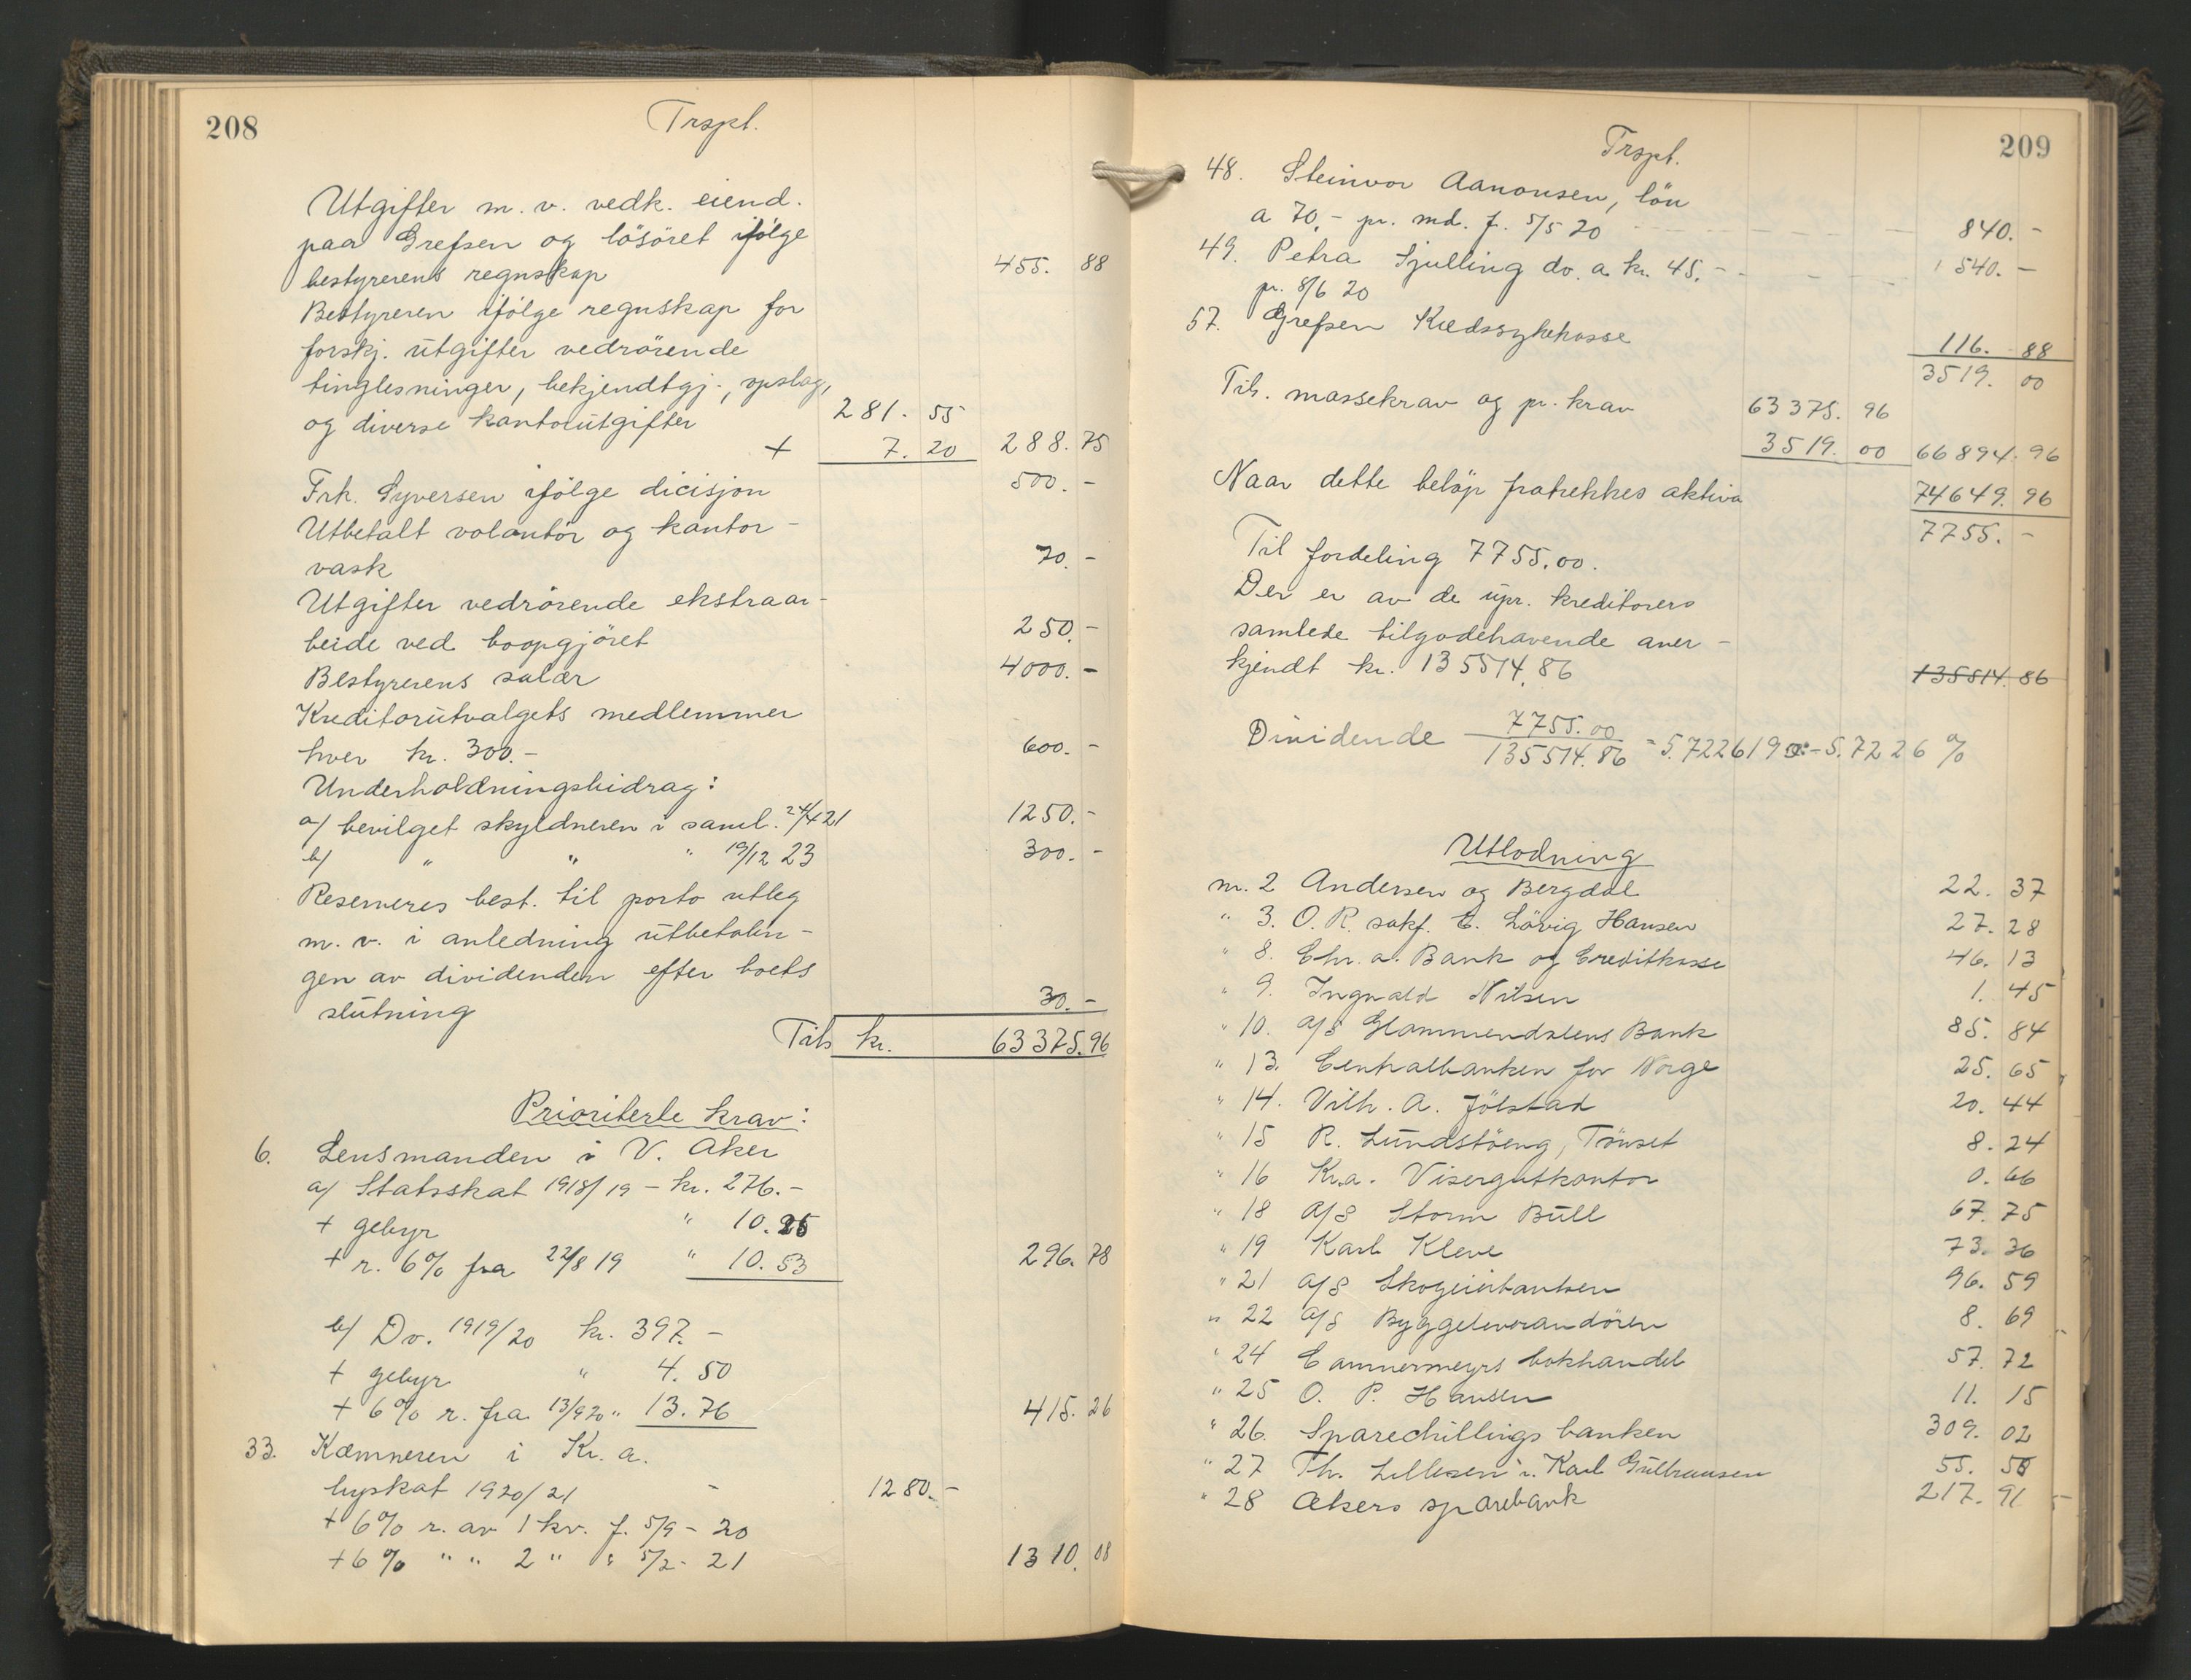 208
Trspt.
Utgifter m. v. vedk. eiend.
paa Grefsen og lösöret ifölge
bestyrerens regnskap 455. 88
Bestyreren ifölge regnskap for
forskj. utgifter vedrörende
tinglesninger, bekjendtgj., opslag,
og diverse kontorutgifter 281. 55
+ 7. 20 288. 75
Frk. Syversen ifölge dicisjon 500. -
Utbetalt volontör og kontor-
vask 70. -
Utgifter vedrörende ekstraar-
beide ved boopgjöret 250. -
Bestyrerens salær 4000. -
Kreditorutvalgets medlemmer
hver kr. 300.- 600. -
Underholdningsbidrag:
a/ bevilget skyldneren i saml. 24/4 21 1250. -
b/ " " " 19/12 23 300. -
Reserveres best. til porto utleg
m. v. i anledning utbetalin-
gen av dividenden efter boets
slutning 30. -
Tils kr. 63375. 96
Prioriterte krav:
6. Lensmanden i V. Aker
a/ Statsskat 1918/19 - kr. 276.-
+ gebyr " 10. 25
+ r. 6% fra 22/8 19 " 10. 53 296. 78
b/ Do. 1919/20 kr. 397. -
+ gebyr " 4. 50
+ 6% r. fra 13/9 20 " 13. 76 415. 26
33. Kæmneren i Kr. a.
byskat 1920/21 - 1280. -
+ 6% r. av 1 kv. f. 5/9 - 20
+ 6% " " 2 " " 5/2 - 21 1310. 08
209
Trspt.
48. Steinvor Aanonsen, lön
a 70,- pr. md. f. 5/5 20 840. -
49. Petra Sjulling do. a kr. 45. - 540. -
pr. 8/6 20
57. Grefsen Kredssykekasse 116. 88
3519. 00
Tils. massekrav og pr. krav 63375. 96
3519. 00 66894. 96
Naar dette belöp fratrekkes aktiva 74649. 96
7755. -
Til fordeling 7755.00.
Der er av de upr. kreditorers
samlede tilgodehavende aner-
kjendt kr. 135514,86 135514. 86
Dividende 7755.00
135514.86 = 5.7226190 - 5.7226 %
Utlodning
nr. 2 Andersen og Bergdal 22. 37
" 3. O. R. sakf. C. Lövig Hansen 27. 28
" 8. Chr. a. Bank og Creditkasse 46. 13
" 9. Ingvald Nilsen 1. 45
" 10. A/S Glommendalens Bank 85. 84
" 13. Centralbanken for Norge 25. 65
" 14. Vilh. A. Jölstad 20. 44
" 15 R. Lundstöeng, Tönset 8. 24
" 16 Kr.a. Visergutkontor 0. 66
" 18 A/S Storm Bull 67. 75
" 19 Karl Kleve 73. 36
" 21 A/S Skogeierbanken 96. 59
" 22 A/S Byggeleverandören 8. 69
" 24 Cammermeyrs bokhandel 57. 72
" 25 O. P. Hansen 11. 15
" 26. Sparechillings banken 309. 02
" 27 Th. Lillesen v. Karl Gulbransen 55. 58
" 28 Akers sparebank 217. 91